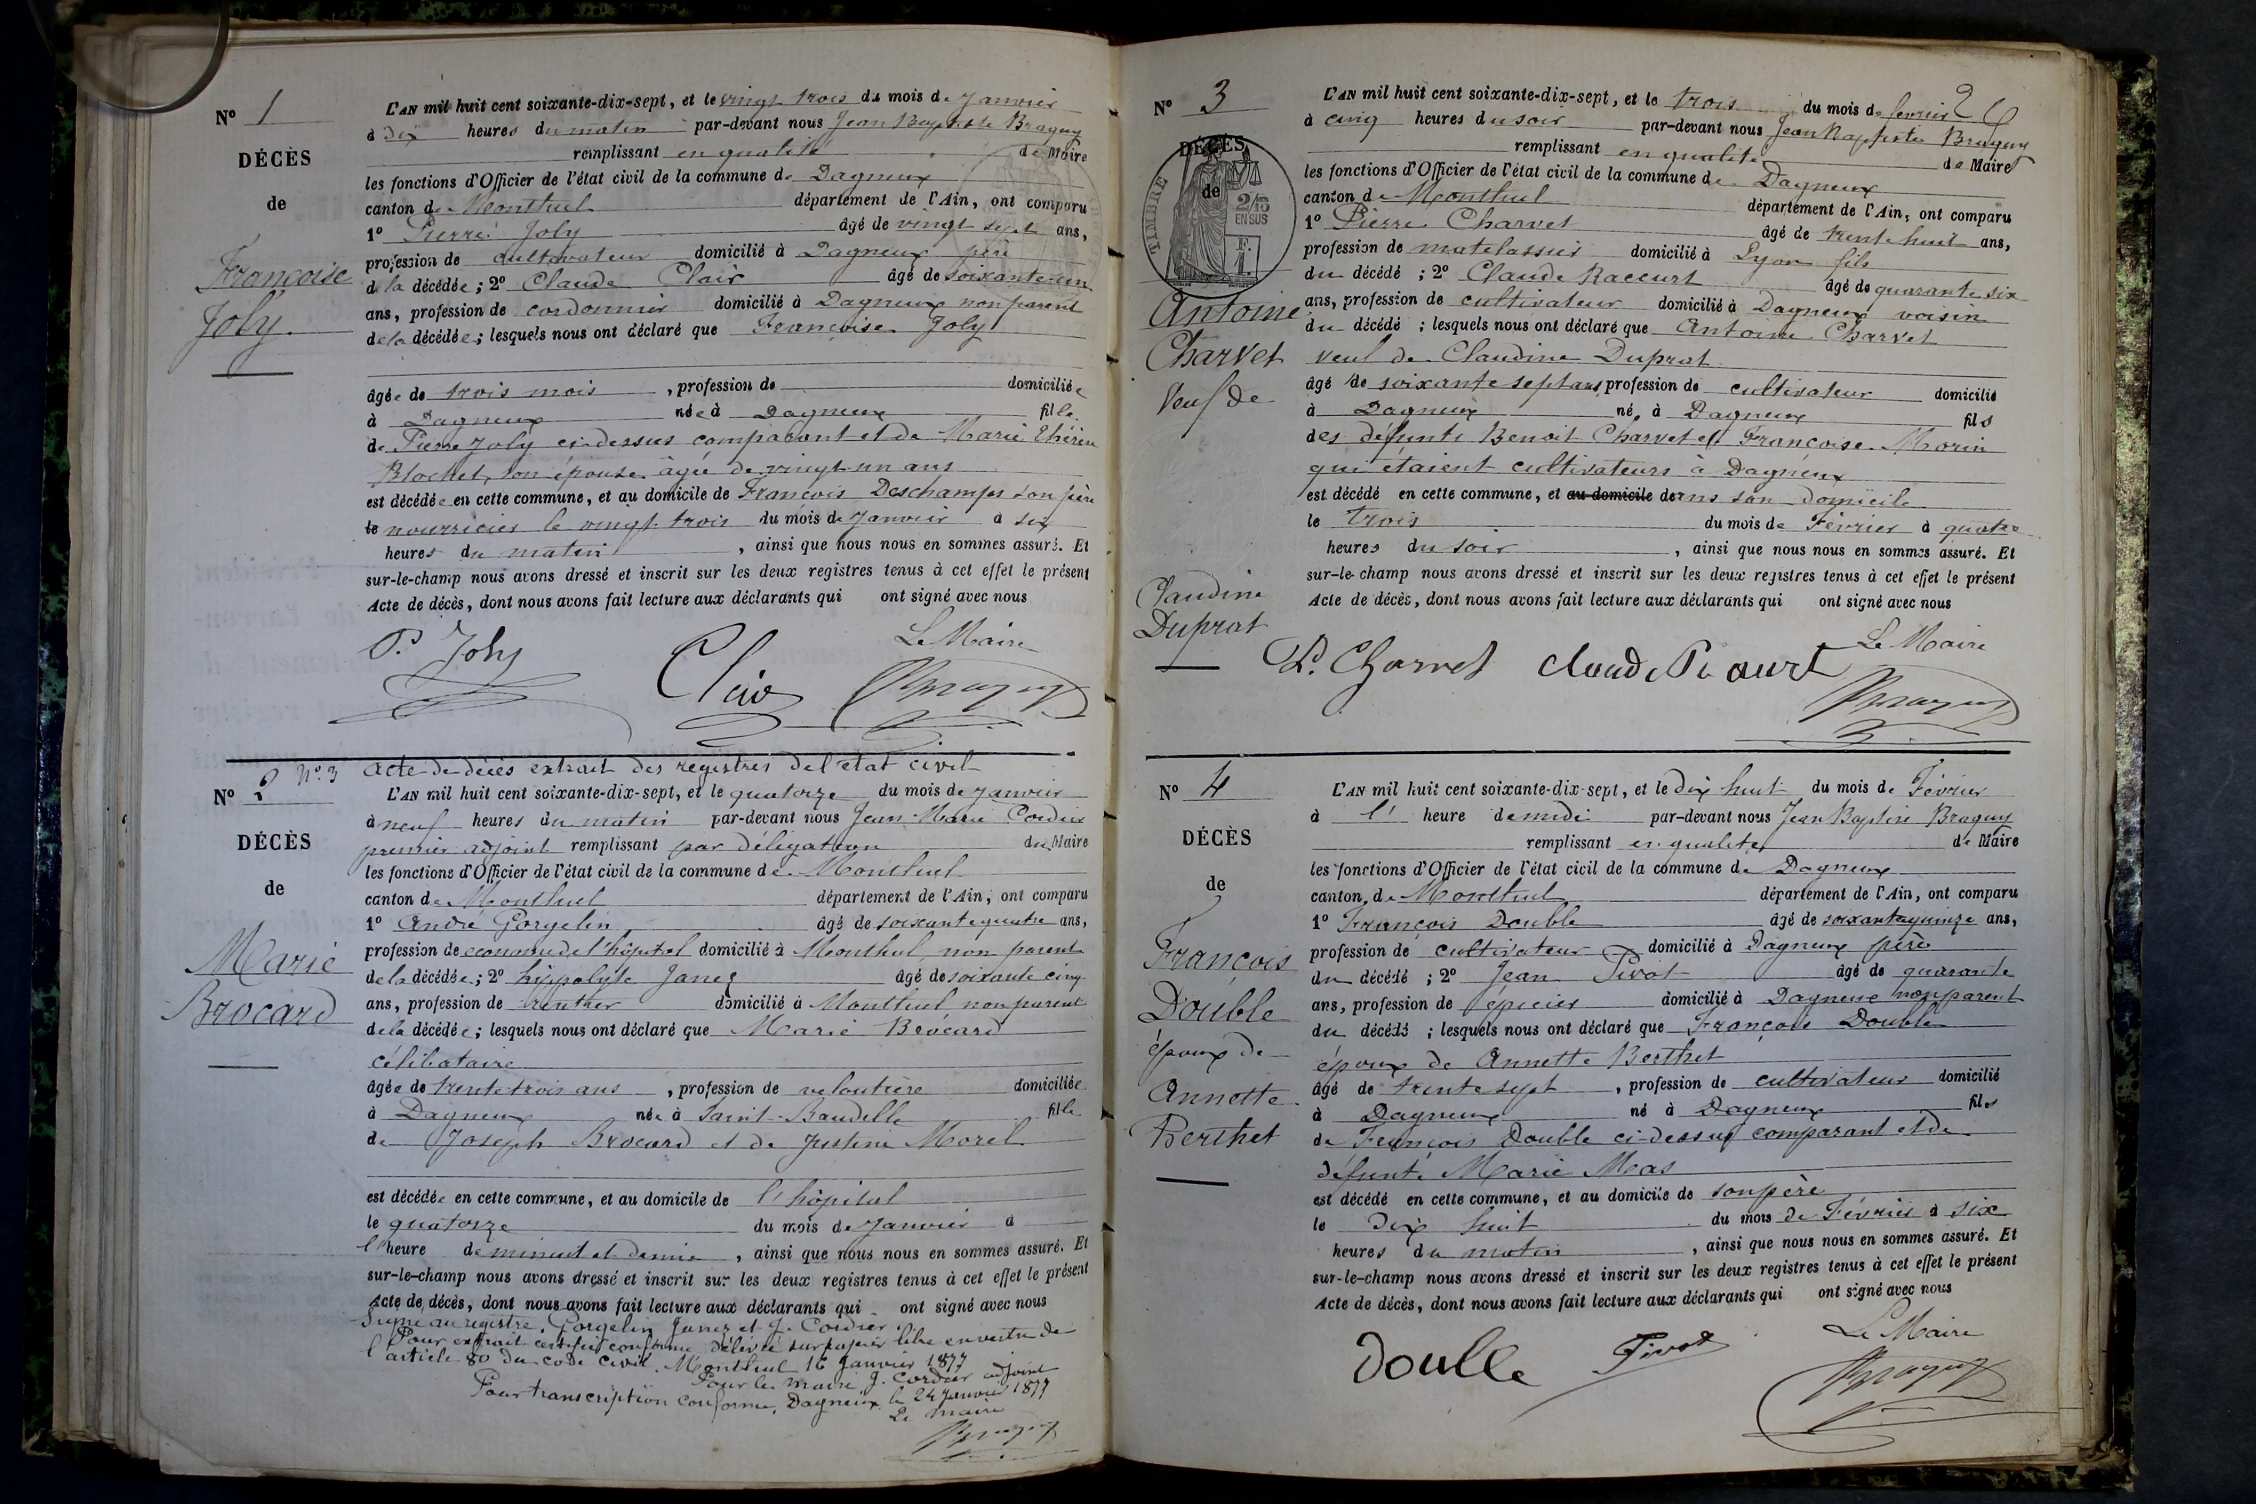 N° 1
DÉCÈS
de
Françoise
Joly.
L'AN mil huit cent soixante-dix-sept, et le vingt trois du mois de Janvier
à dix heures du matin par-devant nous Jean Baptiste Braguy
remplissant en qualité de Maire
les fonctions d'Officier de l'état civil de la commune de Dagneux
canton de Montluel département de l'Ain, ont comparu
1° Pierre Joly âgé de vingt sept ans,
profession de cultivateur domicilié à Dagneux père
de la décédée; 2° Claude Clair âgé de soixante un
ans, profession de cordonnier domicilié à Dagneux non parent
de la décédée; lesquels nous ont déclaré que Françoise Joly
âgée de trois mois, profession de domiciliée
à Dagneux née à Dagneux fille
de Pierre Joly ci-dessus comparant et de Marie
Blochet, son épouse âgée de vingt un ans
est décédée en cette commune, et au domicile de François Deschamps son père
le nourricier le vingt trois du mois de Janvier à six
heures du matin, ainsi que nous nous en sommes assuré. Et
sur-le-champ nous avons dressé et inscrit sur les deux registres tenus à cet effet le présent
Acte de décès, dont nous avons fait lecture aux déclarants qui ont signé avec nous
Le Maire
P. Joly Clair Braguy
N° 2 N° 3
DÉCÈS
de
Marie
Brocard
Acte de décès extrait des registres de l'état civil
L'AN mil huit cent soixante-dix-sept, et le quatorze du mois de Janvier
à neuf heures du matin par-devant nous Jean-Marie Cordier
premier adjoint remplissant par délégation du Maire
les fonctions d'Officier de l'état civil de la commune de Montluel
canton de Montluel département de l'Ain, ont comparu
1° André Gorgelin âgé de soixante quatre ans,
profession de econome de l'hôpital domicilié à Montluel, non parent
de la décédée; 2° hippolyte Janez âgé de soixante cinq
ans, profession de rentier domicilié à Montluel non parent
de la décédée; lesquels nous ont déclaré que Marie Brocard
célibataire
âgée de trente trois ans, profession de veloutière domiciliée
à Dagneux née à Saint-Baudille fille
de Joseph Brocard et de Justine Morel
est décédée en cette commune, et au domicile de l'hôpital
le quatorze du mois de Janvier à
l'heure de minuit et demie, ainsi que nous nous en sommes assuré. Et
sur-le-champ nous avons dressé et inscrit sur les deux registres tenus à cet effet le présent
Acte de décès, dont nous avons fait lecture aux déclarants qui ont signé avec nous
Signé au registre, Gorgelin Janez et J. Cordier.
Pour extrait certifié conforme délivré sur papier libre en vertu de
l'article 80 du code civil. Montluel 16 Janvier 1877
Pour le maire J. Cordier adjoint
Pour transcription conforme, Dagneux le 24 Janvier 1877
Le maire
Braguy
2
N° 3
DÉCÈS
de
TIMBRE
2/10
EN SUS
F.
1.
Antoine
Charvet
Veuf de
Claudine
Duprat
L'AN mil huit cent soixante-dix-sept, et le trois du mois de fevrier
à cinq heures du soir par-devant nous Jean Baptiste Braguy
remplissant en qualité de Maire
les fonctions d'Officier de l'état civil de la commune de Dagneux
canton de Montluel département de l'Ain, ont comparu
1° Pierre Charvet âgé de trente huit ans,
profession de matelassier domicilié à Lyon fils
du décédé ; 2° Claude Raccurt âgé de quarante six
ans, profession de cultivateur domicilié à Dagneux voisin
du décédé ; lesquels nous ont déclaré que Antoine Charvet
veuf de Claudine Duprat
âgé de soixante sept ans profession de cultivateur domicilié
à Dagneux né, à Dagneux fils
des défunts Benoit Charvet et Françoise Morin
qui étaient cultivateurs à Dagneux
est décédé en cette commune, et au domicile dans son domicile
le trois du mois de Février à quatre
heures du soir, ainsi que nous nous en sommes assuré. Et
sur-le-champ nous avons dressé et inscrit sur les deux registres tenus à cet effet le présent
Acte de décès, dont nous avons fait lecture aux déclarants qui ont signé avec nous
Le Maire
P. Charvet Claude Braguy
N° 4
DÉCÈS
de
François
Double
époux de
Annette
Berthet
L'AN mil huit cent soixante-dix-sept, et le dix huit du mois de Février
à l' heure de midi par-devant nous Jean Baptiste Braguy
remplissant en qualité de Maire
les fonctions d'Officier de l'état civil de la commune de Dagneux
canton, de Montluel département de l'Ain, ont comparu
1° François Double âgé de soixante quinze ans,
profession de cultivateur domicilié à Dagneux père
du décédé ; 2° Jean Pivot âgé de quarante
ans, profession de épicier domicilié à Dagneux non parent
du décédé ; lesquels nous ont déclaré que François Double
époux de Annette Berthet
âgé de trente sept, profession de cultivateur domicilié
à Dagneux né à Dagneux fils
de François Double ci-dessus comparant et de
défunte Marie Mas
est décédé en cette commune, et au domicile de son père
le dix huit du mois de Février à six
heures du matin, ainsi que nous nous en sommes assuré. Et
sur-le-champ nous avons dressé et inscrit sur les deux registres tenus à cet effet le présent
Acte de décès, dont nous avons fait lecture aux déclarants qui ont signé avec nous
Le Maire
Doulle Pivot Braguy